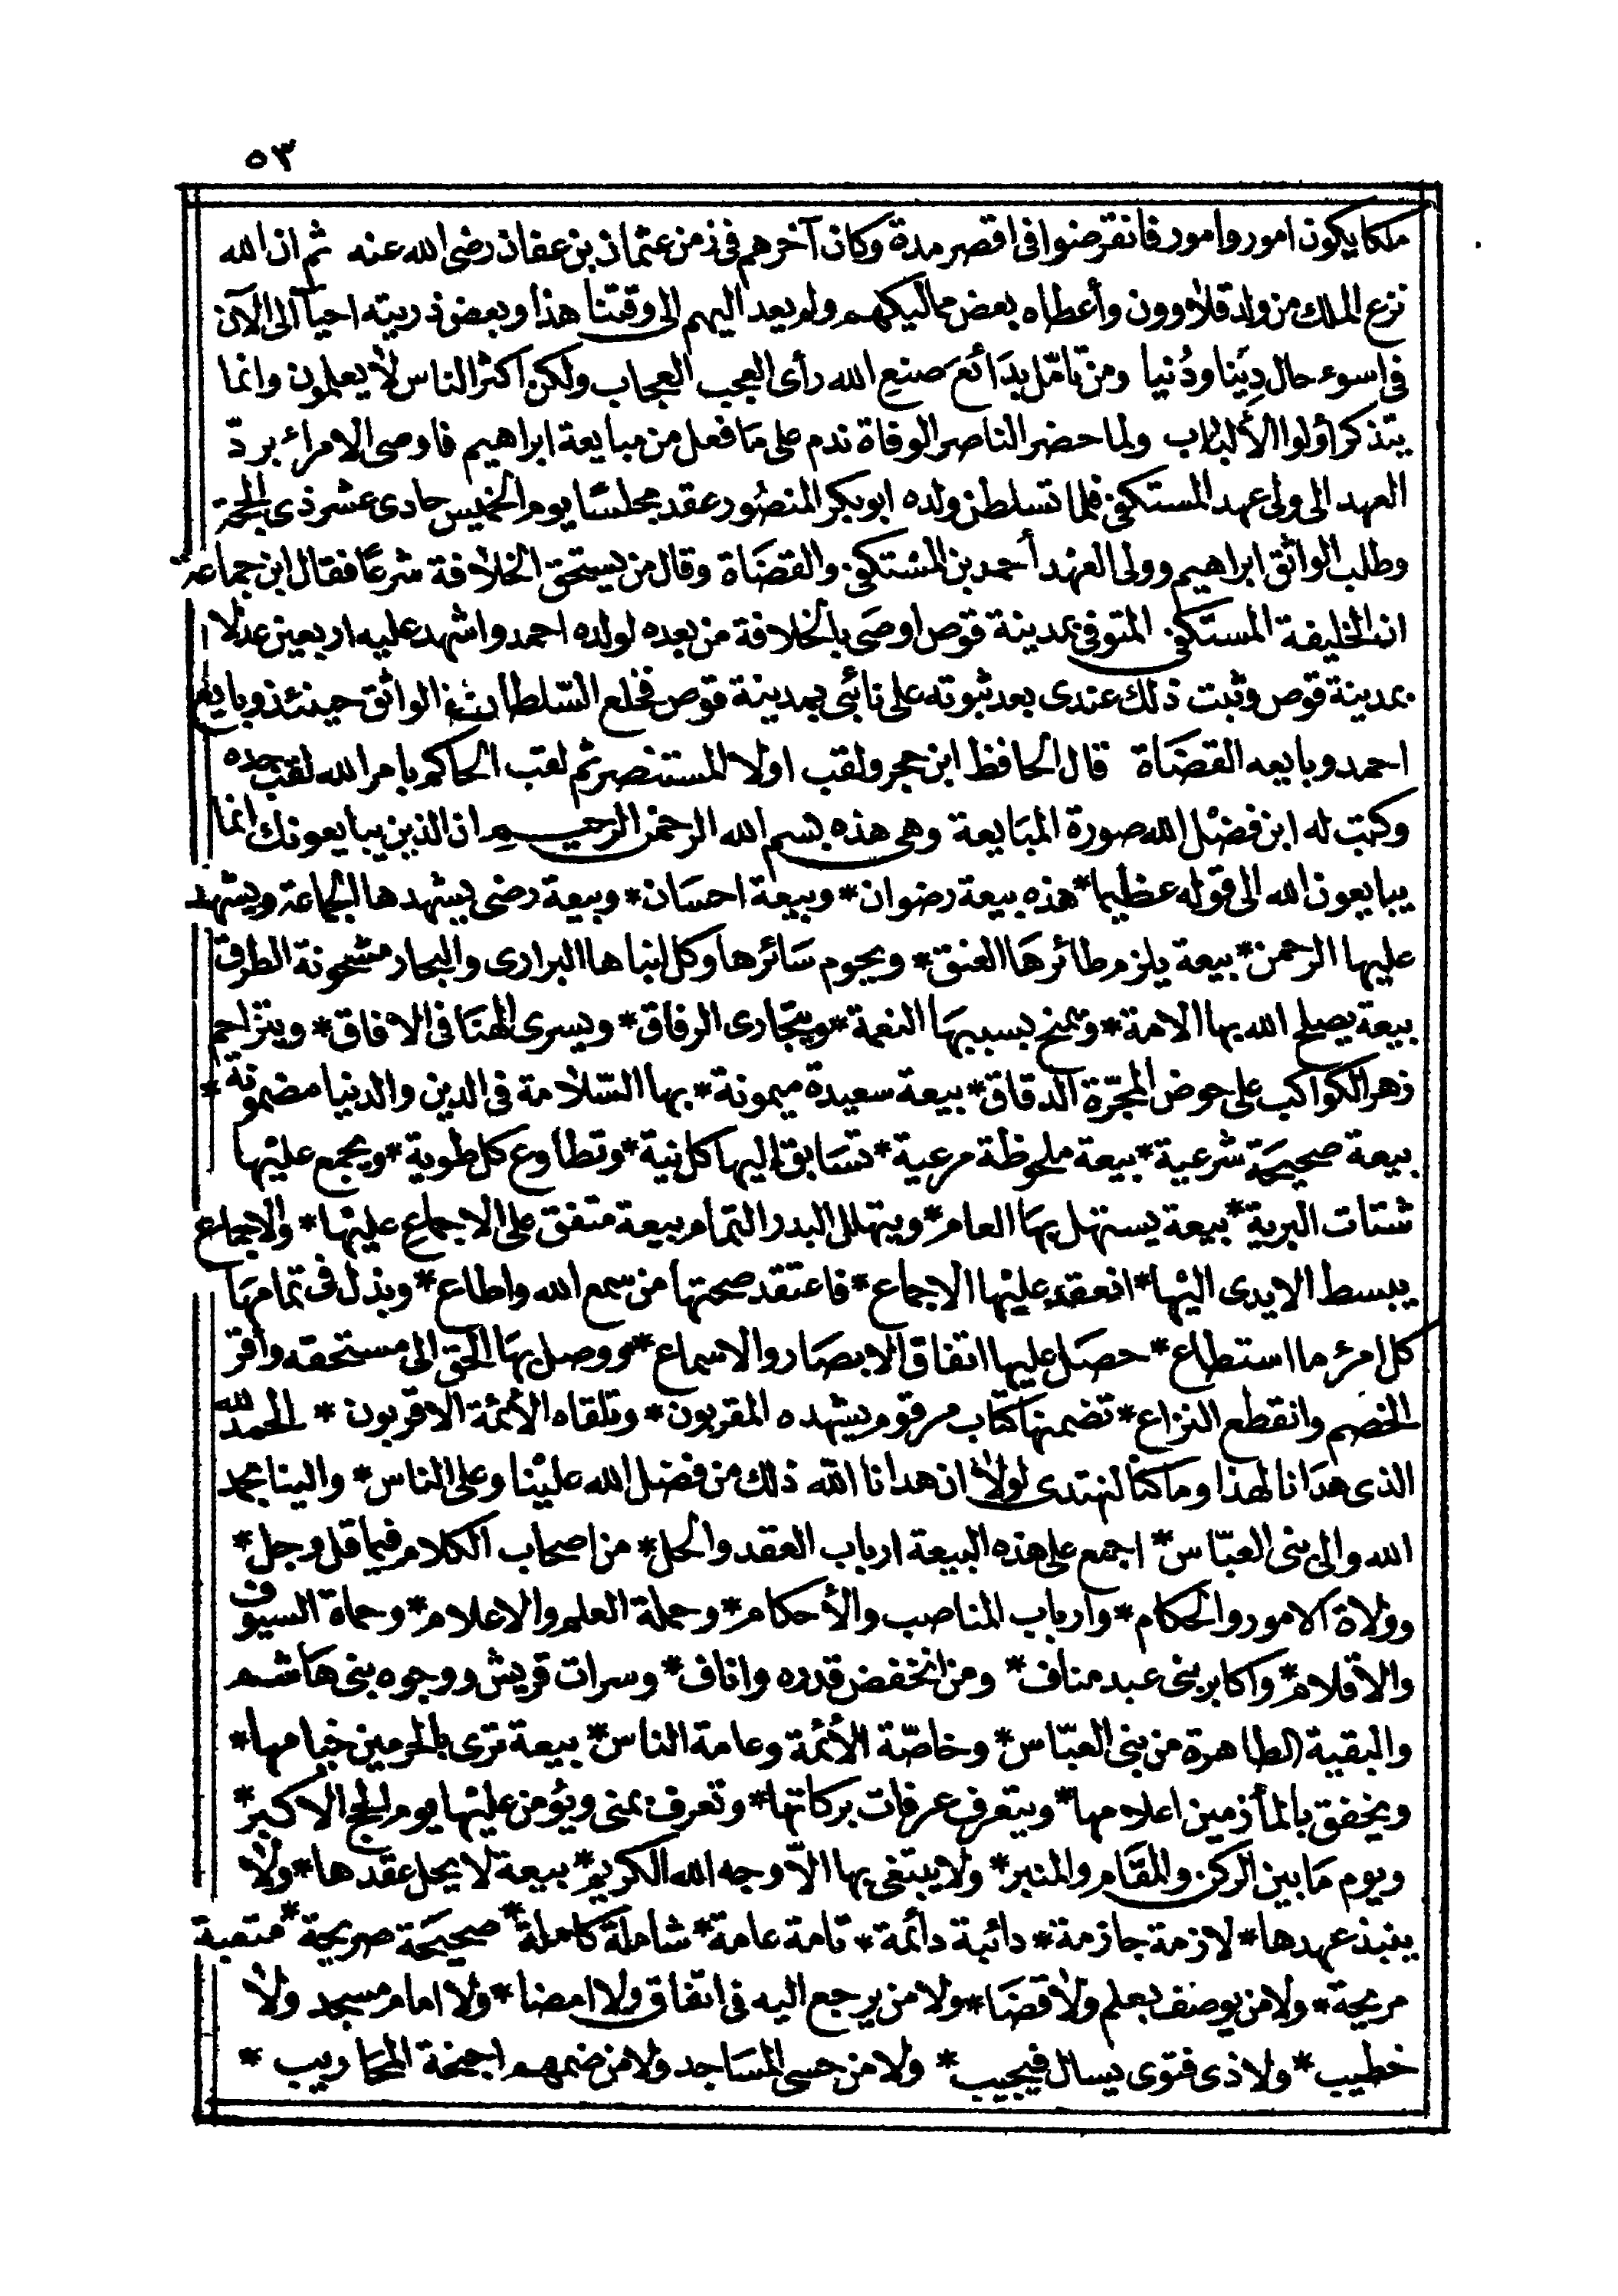 ٥٣
ملكا يكون امور وامور فانقرضوا فى اقصر مدة وكان آخرهم فى زمن عثمان بن عفان رضى الله عنه ثم ان الله
نزع الملك من ولد قلاوون وأعطاه بعض مماليكهم ولم يعد اليهم الى وقتنا هذا وبعض ذريته احيآ الى الآن
فى اسوء حال دِيَنا ودُنيا ومن تامّل بدَائعَ صنيع الله رأى العجب العجاب ولكن اكثر الناس لا يعلمون وانما
يتذكر اولوا الألباب ولما حضر الناصر الوفاة ندم على مَا فعل من مبايعة ابراهيم فاوصى الامراء بردّ
العهد الى ولى عهد المستكفى فلما تسلطن ولده ابو بكر المنصُور عقد مجلسًا يوم الخميس حادى عشر ذى الحجة
وطلب الواثق ابراهيم وولى العهد أحمد بن المستكفى والقضَاة وقال من يستحق الخلافة شرعًا فقال ابن جماعة
ان الخليفة المستكفى المتوفى بمدينة قوص اوصَى بالخلافة من بعده لولده احمد واشهد عليه اربعين عدلا
بمدينة قوص وثبت ذلك عندى بعد ثبوته على نائبى بمدينة قوص فخلع السّلطان الواثق حينئذ وبايع
احمد وبايعه القضَاة قال الحافظ ابن حجر ولقب اولا المستنصر ثم لقب الحاكم بامر الله لقب جده
وكتب له ابن فضل الله صورة المبَايعة وهى هذه بسم الله الرحمن الرحيم ان الذين يبايعونك انما
يبايعون الله الى قوله عظيما * هذه بيعة رضوان * وبيعة احسَان * وبيعة رضى يشهدها الجماعة ويشهد
عليها الرحمن * بيعة يلزم طائرهَا العنق * ويحوم سَائرها وكل انباها البرارى والبحار مشحونة الطرق
بيعة يصلح الله بها الامة * وتمنح بسببهَا النعمة * ويتجارى الرفاق * ويسرى الهنَا فى الافاق * ويتزاحم
زهر الكواكب على حوض المجرّة الدقاق * بيعة سعيدة ميمونة * بها السّلامة فى الدين والدنيا مضمونة *
بيعة صحيحَة شرعية * بيعة ملحوظة مرعية * تسَابق اليها كل نية * وتطاوع كل طوية * ويجمع عليْها
شتات البرية * بيعة يستهل بهَا العام * ويتهلل البدر التمام بيعة متفق على الاجماع عليْها * والاجماع
يبسط الايدى اليْها * انعقد عليْها الاجماع * فاعتقد صحتها من سمع الله واطاع * وبذل فى تمامهَا
كل امرئ ما استطاع * حصَل عليها اتفاق الابصَار والاسماع * ووصل بهَا الحق الى مستحقه وأقر
الخصم وانقطع النزاع * تضمنها كتاب مرقوم يشهده المقربون * وتلقاه الأئمة الاقربون * الحمد لله
الذى هدَانا لهذا وما كنا لنهتدى لولا ان هدانا الله ذلك من فضل الله عليْنا وعلى الناس * والينا بحمد
الله والى بنى العبّاس * اجمع على هذه البيعة ارباب العقد والحل * من اصحاب الكلام فيما قل وجل *
وولاة الامور والحكام * وارباب المناصب والأحكام * وحملة العلم والاعلام * وحماة السيوف
والاقلام * واكابر بنى عبد مناف * ومن انخفض قدره واناف * وسرات قريش ووجوه بنى هَاشم
والبقية الطاهرة من بنى العبّاس * وخاصّة الأئمة وعامة الناس * بيعة ترى بالحرمين خيامها *
ويخفق بالمأزمين اعلامها * ويتعرف عرفات بركاتها * وتعرف بمنى ويؤمن عليْها يوم الحج الاكبر *
ويوم مَا بين الركن والمقَام والمنبر * ولا يبتغى بها الّا وجه الله الكريم * بيعة لا يحل عقدها * ولا
ينبذ عهدها * لازمة جازمة * دائبة دائمة * تامة عامة * شاملة كاملة * صحيحَة صريحة * متعبة
مريحة * ولا من يوصف بعلم ولا قضَا * ولا من يرجع اليه فى اتفاق ولا امضا * ولا امام مسجد ولا
خطيب * ولا ذى فتوى يسال فيجيب * ولا من حسى المسَاجد ولا من ضمهم اجنحة المحَاريب *